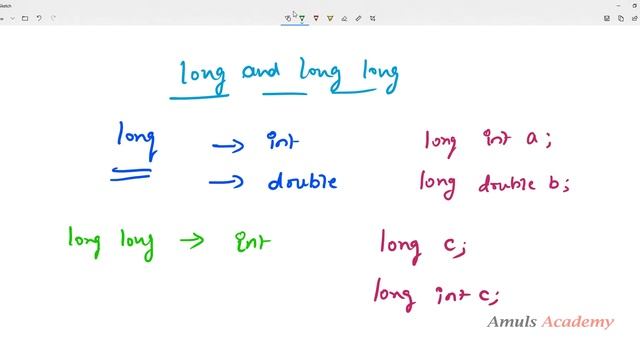 Sketch
long and long long
long → int
→ double
long int a;
long double b;
long long → int
long c;
long int c;
Amuls Academy